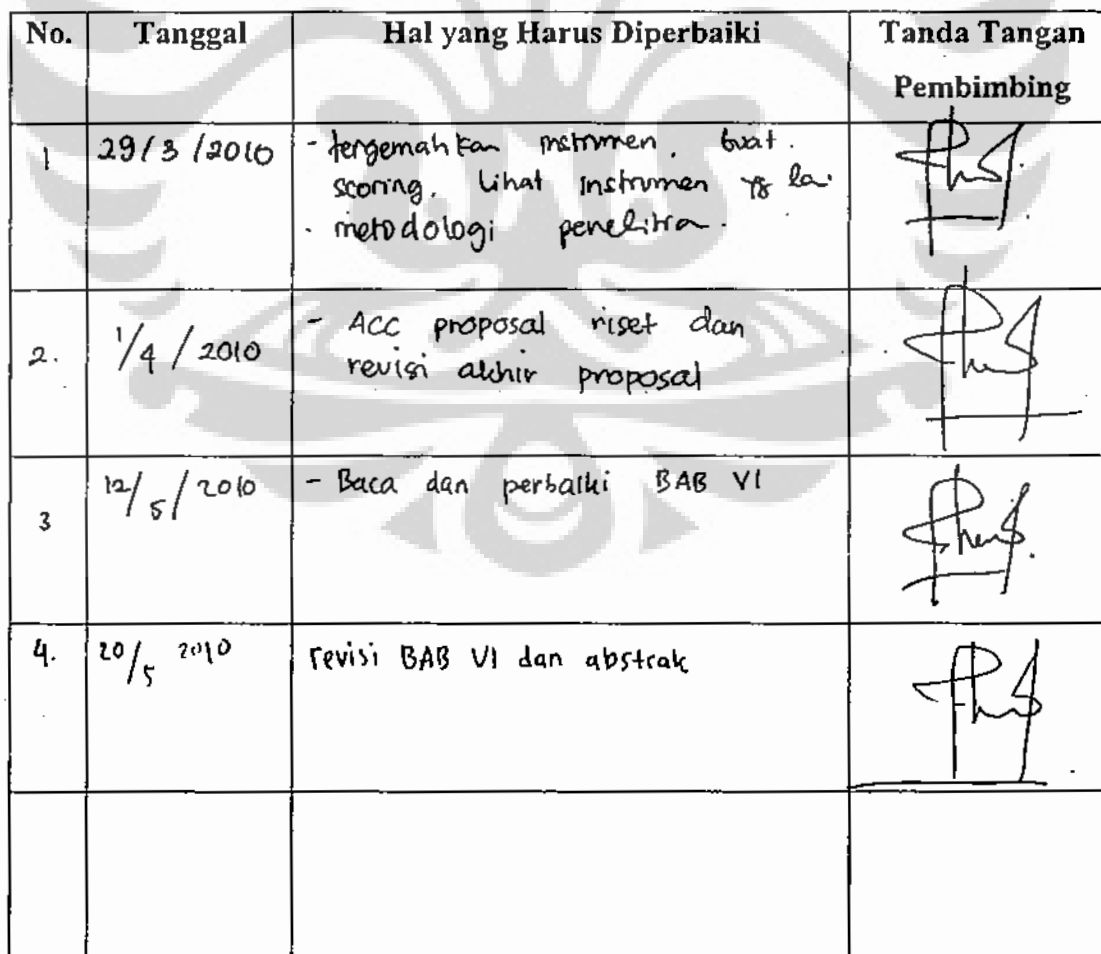 No. Tanggal Hal yang Harus Diperbaiki Tanda Tangan
Pembimbing
1 29/3/2010 - tergemahkan instrumen. buat.
scoring. Lihat instrumen yg
. metodologi penelitian.
2. 1/4/2010 - ACC proposal riset dan
revisi akhir proposal
3 12/5/2010 - Baca dan perbaiki BAB VI
4. 20/5 2010 revisi BAB VI dan abstrak